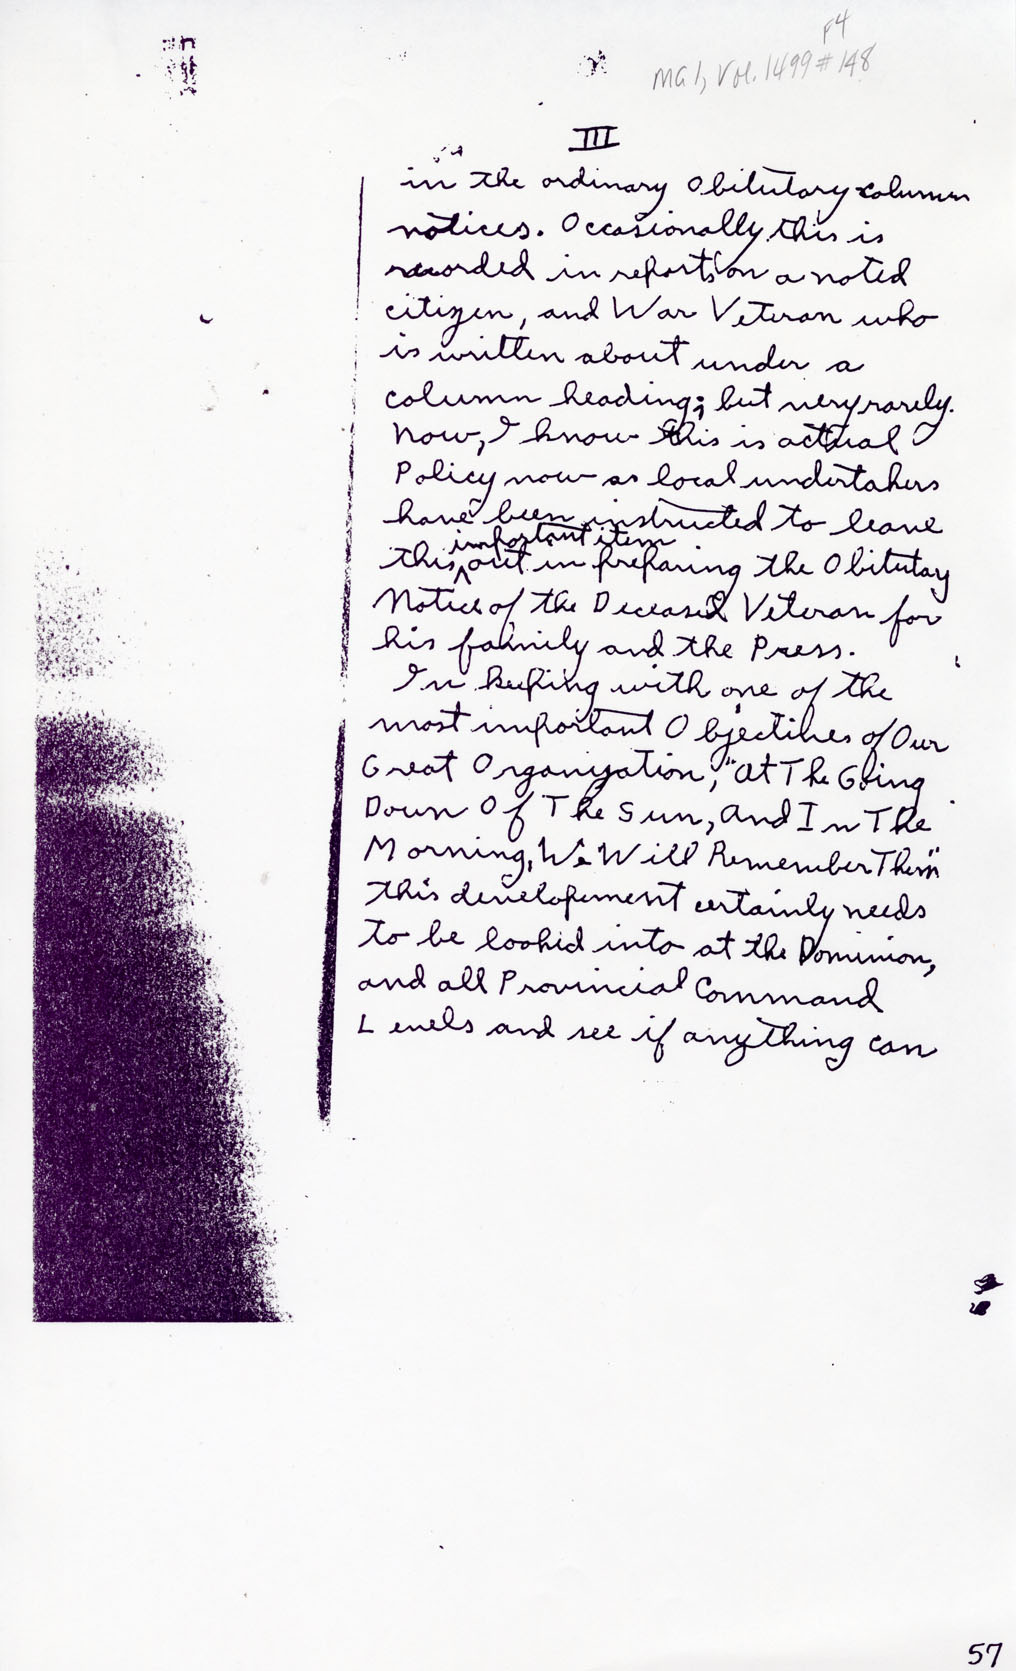 F4
MG1, Vol. 1499 #148
III
in the ordinary Obitutary column
notices. Occasionally this is
recorded in reports on a noted
citizen, and War Veteran who
is written about under a
column heading; but very rarely.
Now, I know this is actual
Policy now as local undertakers
have been instructed to leave
important item
this ^ out in preparing the Obitutary
Notice of the Deceased Veteran for
his family and the Press.
In keeping with one of the
most important Objectives of Our
Great Organization, "At The Going
Down Of The Sun, And In The
Morning, We Will Remember Them"
this developement certainly needs
to be looked into at the Dominion,
and all Provincial Command
Levels and see if anything can
57